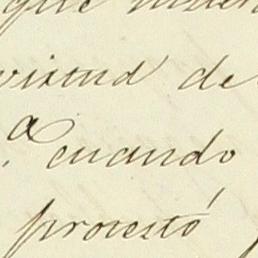 que
virtud de
a cuando
protestó